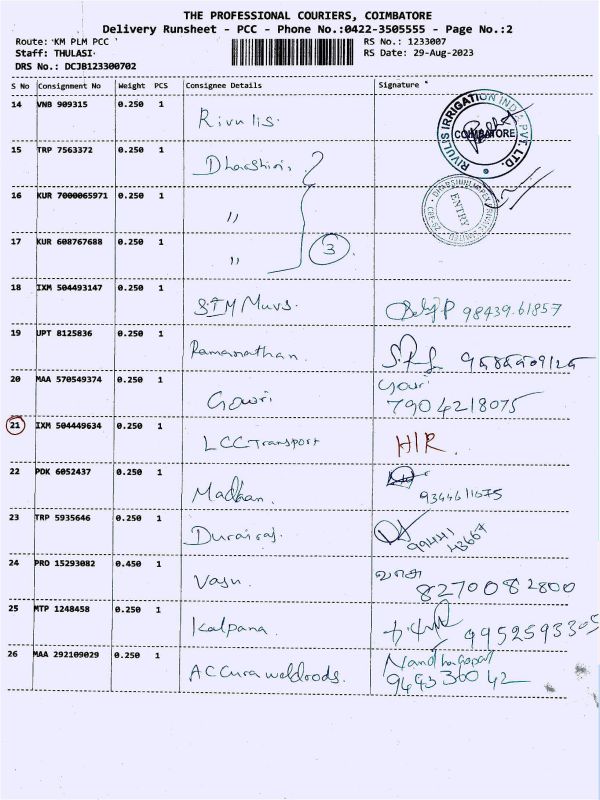 THE PROFESSIONAL COURIERS, COIMBATORE
Delivery Runsheet - PCC - Phone No.:0422-3505555 - Page No.:2
Route: KM PLM PCC
RS No.: 1233007
Staff: THULASI
RS Date: 29-Aug-2023
DRS No.: DCJB123300702
S No Consignment No Weight PCS Consignee Details Signature
14 VNB 909315 0.250 1 Rivulis.
RIVULIS IRRIGATION INDIA PVT. LTD.
COIMBATORE
15 TRP 7563372 0.250 1 Dharshini,
16 KUR 7000065971 0.250 1 "
ENTRY
17 KUR 608767688 0.250 1 "
3
18 IXM 504493147 0.250 1 STM Muvs. 98439.61857
19 UPT 8125836 0.250 1 Ramanathan.
20 MAA 570549374 0.250 1 Gowri
Gowri
7904218075
21 IXM 504449634 0.250 1 LCC Transport H/R.
22 PDK 6052437 0.250 1 Madhan. 9344611675
23 TRP 5935646 0.250 1 Durairaj. 99441 43667
24 PRO 15293082 0.450 1 Vasu 8270082800
25 MTP 1248458 0.250 1 Kalpana. 9952593305
26 MAA 292109029 0.250 1 ACCura weldrods.
Nandhagopal